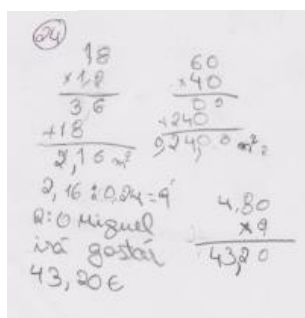 24
18
× 1,2
3 6
+18
2,16 m²
60
× 40
0 0
+240
0,24,0 0 m²
2,16 : 0,24 = 9
R: O Miguel
irá gastar
43,20 €
4,80
× 9
43,20